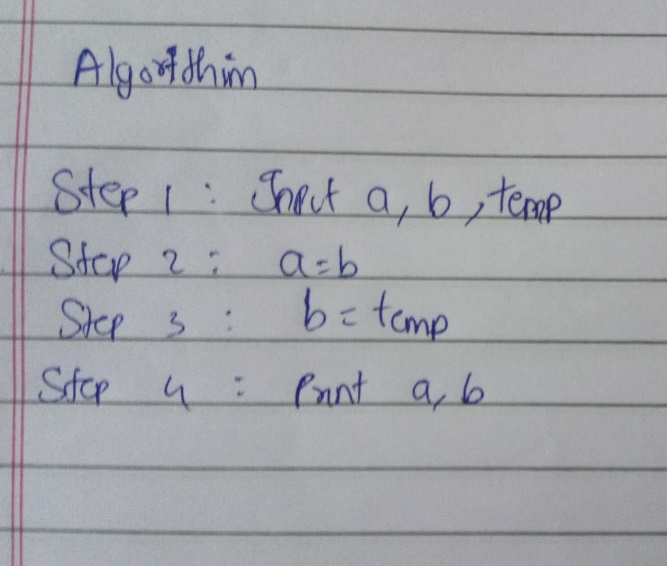 Algorithim
Step 1 : Input a, b, temp
Step 2 : a=b
Step 3 : b = temp
Step 4 : Print a, b